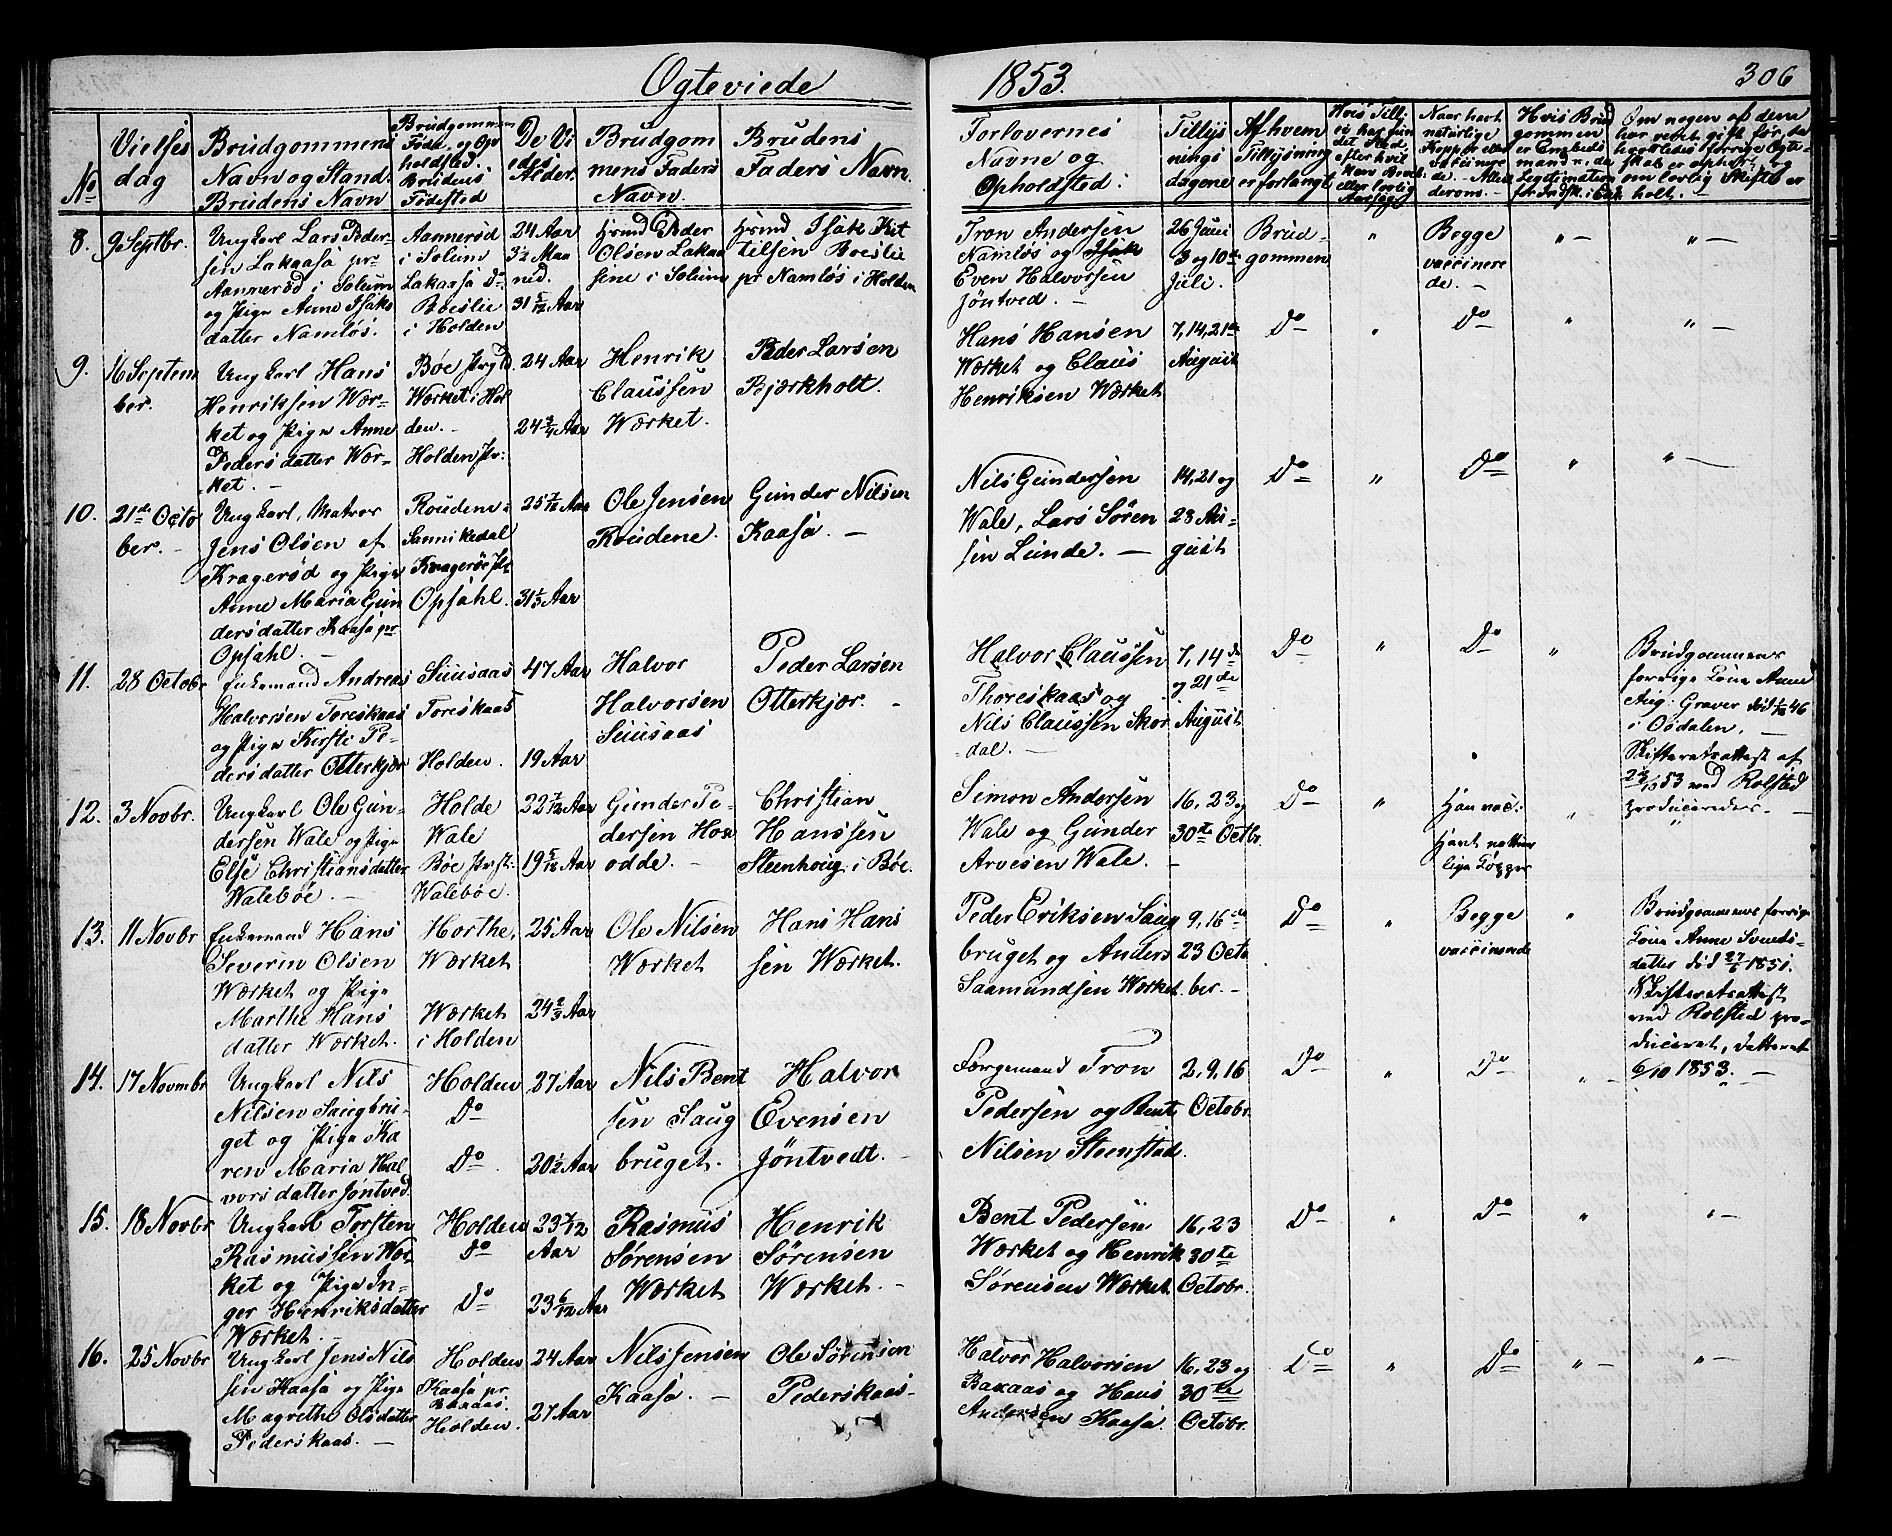 Ogteviede
1853.
306
No
Vielses
dag
Brudgommens
Navn og Stand.
Brudens Navn
Brudgommens
Føde, og Op
holdsted.
Brudens
Fødested
De Vi
edes
Alder.
Brudgom
mens Faders
Navn.
Brudens
Faders Navn.
Forlovernes
Navne og
Opholdsted:
Tillys
nings
dagene
Af hvem
Tillysning
er forlangt
Naar havt
naturlige
Kopper eller
vaccinere
de.
Hvis Brud
gommen
er Embeds
mand
Legitimation
Om nogen af dem
har været gift før, da
hvorledes forrige Ægte-
skab er ophørt og
om lovlig Skifte er
holt.
8.
9 Septbr.
Ungkarl Lars Peder-
sen Lakaasa pr
Aannerød i Solum
og Pige Anne Isaks
datter Namløs.
Aannerød
i Solum
Lakaasa Do
Boeslie
i Holden
24 Aar
3½ Maa
ned.
31 5/12 Aar
Hmd Peder
Olsen Lakaa
sene i Solum
Hmd Isak Kit
tilsen Boeslie
pr Namløs i Holden
Tron Andersen
Namløs og Isak
Even Halvorsen
Jøntved. —
26 Juni
3 og 10de
Juli.
Brud-
gommen
"
Begge
vaccinere
de. —
" —
" —
9.
16 Septem
ber.
Ungkarl Hans
Henriksen Wær-
ket og Pige Anne
Pedersdatter Wær-
ket. —
Bøe Prgld
Wærket i Hol
den. —
Holden Pr:
24 Aar
24 3/4 Aar
Henrik
Claussen
Wærket.
Peder Larsen
Bjærkholt.
Hans Hansen
Wærket og Claus
Henriksen Wærket
7, 14, 21de
August
Do
"
Do
"
" —
10.
21de Octo
ber. —
Ungkarl, Matros
Jens Olsen af
Kragerød og Pige
Anne Maria Gun
dersdatter Kaasa pr
Opsahl. —
Roudene i
Sannikedal
Kragerøe Pr
Opsahl.
25 7/12 Aar
31 1/3 Aar
Ole Jensen
Roudene.
Gunder Nilsen
Kaasa. —
Nils Gundersen
Wale, Lars Søren
sen Lunde. —
14, 21 og
28 Au-
gust
Do
"
Do
"
" —
11.
28 Octobr
Enkemand Andreas
Halvorsen Toreskaas
og Pige Kirsti Pe-
dersdatter Otterkjær
Suusaas
Toreskaas
Holden.
47 Aar
19 Aar
Halvor
Halvorsen
Suusaas
Peder Larsen
Otterkjær. —
Halvor Claussen
Thoreskaas og
Nils Claussen Skor
dal. —
7, 14de
og 21de
August
Do
"
Do
"
Brudgommens
forrige Kone Anne
Aug: Graver død 46
i Osdalen, —
Skifteretsattest af
53 med Rolsted
produceredes. —
12.
3 Novbr.
Ungkarl Ole Gun-
dersen Wale og Pige
Else Christiansdatter
Walebøe. —
Holde
Wale
Bøe Prst:
Walebøe.
22 7/12 Aar
19 5/12 Aar
Gunder Pe-
dersen Hos
odde. —
Christian
Hanssen
Steenhoug i Bøe.
Simon Andersen
Wale og Gunder
Arvesen Wale. —
16, 23 og
30te Octbr.
Do
"
Han vac:
Havt natur
lige Kopper
"
13.
11 Novbr
Enkemand Hans
Severin Olsen
Wærket og Pige
Marthe Hans
datter Wærket.
Horthe,
Wærket
Wærket
i Holden
25 Aar
24 2/3 Aar
Ole Nilsen
Wærket
Hans Hans
sen Wærket.
Peder Eriksen Saug
bruget og Anders
Saamundsen Wærket.
9, 16de
23 Octo
ber. —
Do
"
Begge
vaccinerede
"
Brudgommens forrige
Kone Anne Svends-
datter død 27/6 1851.
Skifteretsattest
med Rolsted pro-
duceret, datteret
6/10 1853. —
14.
17 Novmbr
Ungkarl Nils
Nilsen Saugbru-
get og Pige Ka
ren Maria Hal
vorsdatter Jøntved.
Holden
Do
Do
27 Aar
20½ Aar
Nils Bent
sen Saug
bruget.
Halvor
Evensen
Jøntvedt. —
Færgemand Tron
Pedersen og Bent
Nilsen Steenstad.
2, 9, 16
Octobr.
Do
"
Do
" —
15.
18 Novbr
Ungkarl Torsten
Rasmussen Wær-
ket og Pige In-
ger Henriksdatter
Wærket
Holden
Do
Do
23 7/12
Aar
23 6/12 Aar
Rasmus
Sørensen
Wærket
Henrik
Sørensen
Wærket. —
Bent Pedersen
Wærket og Henrik
Sørensen Wærket
16, 23
30te
Octobr.
Do
"
Do
"
" —
16.
25 Novbr
Ungkarl Jens Nils
sen Kaasa og Pige
Magrethe Olsdatter
Pederskaas. —
Holden
Kaasa pr
Baxaas.
Holden.
24 Aar
27 Aar
Nils Jensen
Kaasa. —
Ole Sørensen
Pederskaas—
Halvor Halvorsen
Baxaas og Hans
Andersen Kaasa.
16, 23 og
30te
Octobr.
Do
"
Do
" —
" —